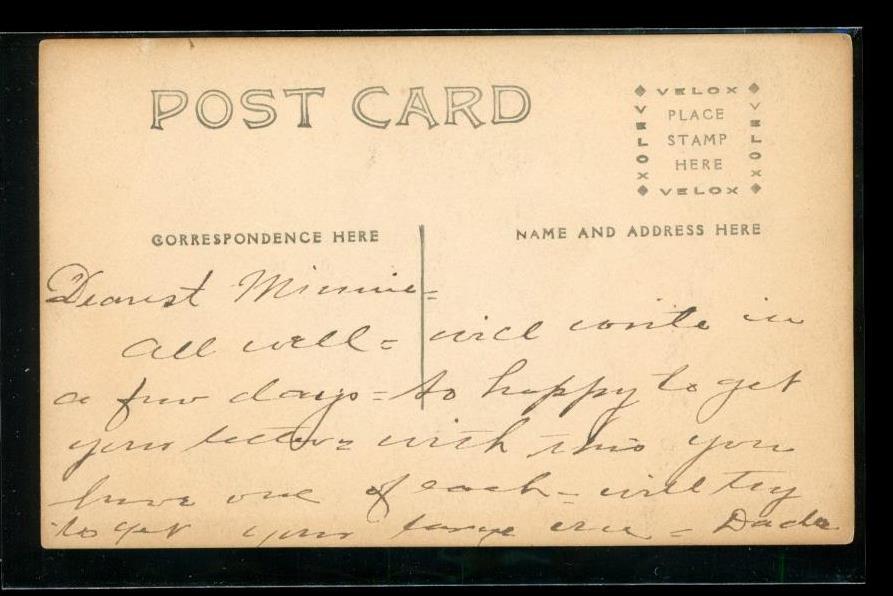 POST CARD
VELOX
VELOX
PLACE
STAMP
HERE
VELOX
VELOX
CORRESPONDENCE HERE
NAME AND ADDRESS HERE
Dearest Minnie=
All well = will write in
a few days = so happy to get
your letter = with this you
have one of each = will try
to get your large one = Dada